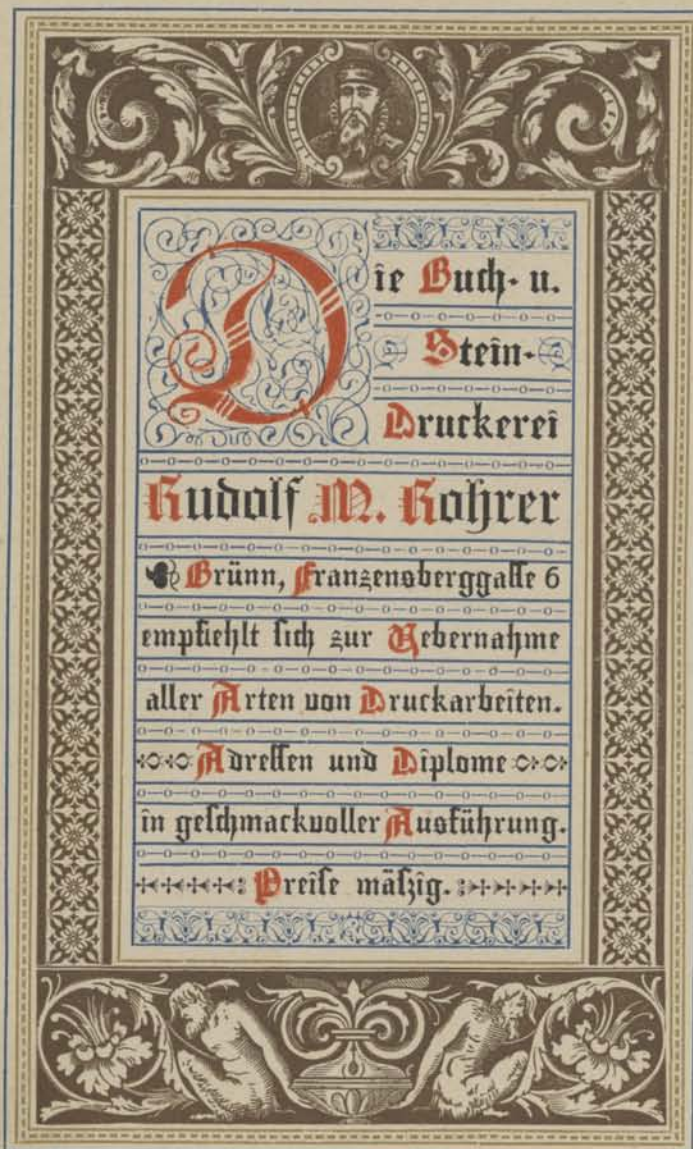 Die Buch- u.
Stein-
Druckerei
Rudolf M. Rohrer
Brünn, Franzensberggasse 6
empfiehlt sich zur Uebernahme
aller Arten von Druckarbeiten.
Adressen und Diplome
in geschmackvoller Ausführung.
Preise mäßig.